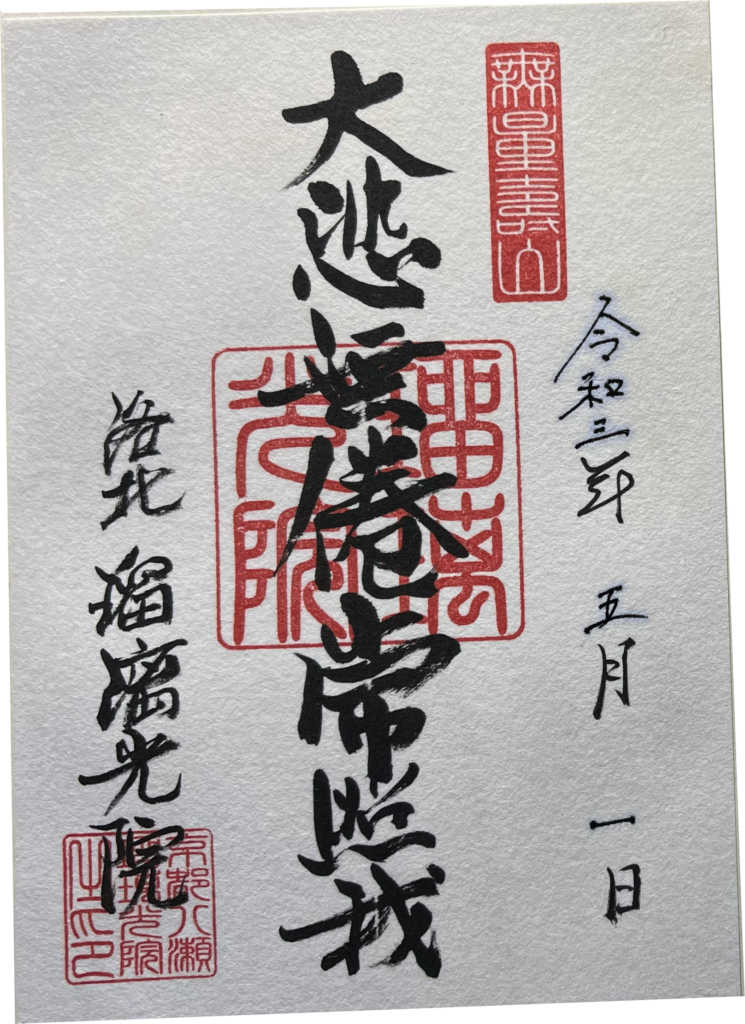 無量寿山
令和三年 五月 一日
大悲無倦常照我
瑠璃光院
洛北 瑠璃光院
京都八瀬
瑠璃光院
住之印